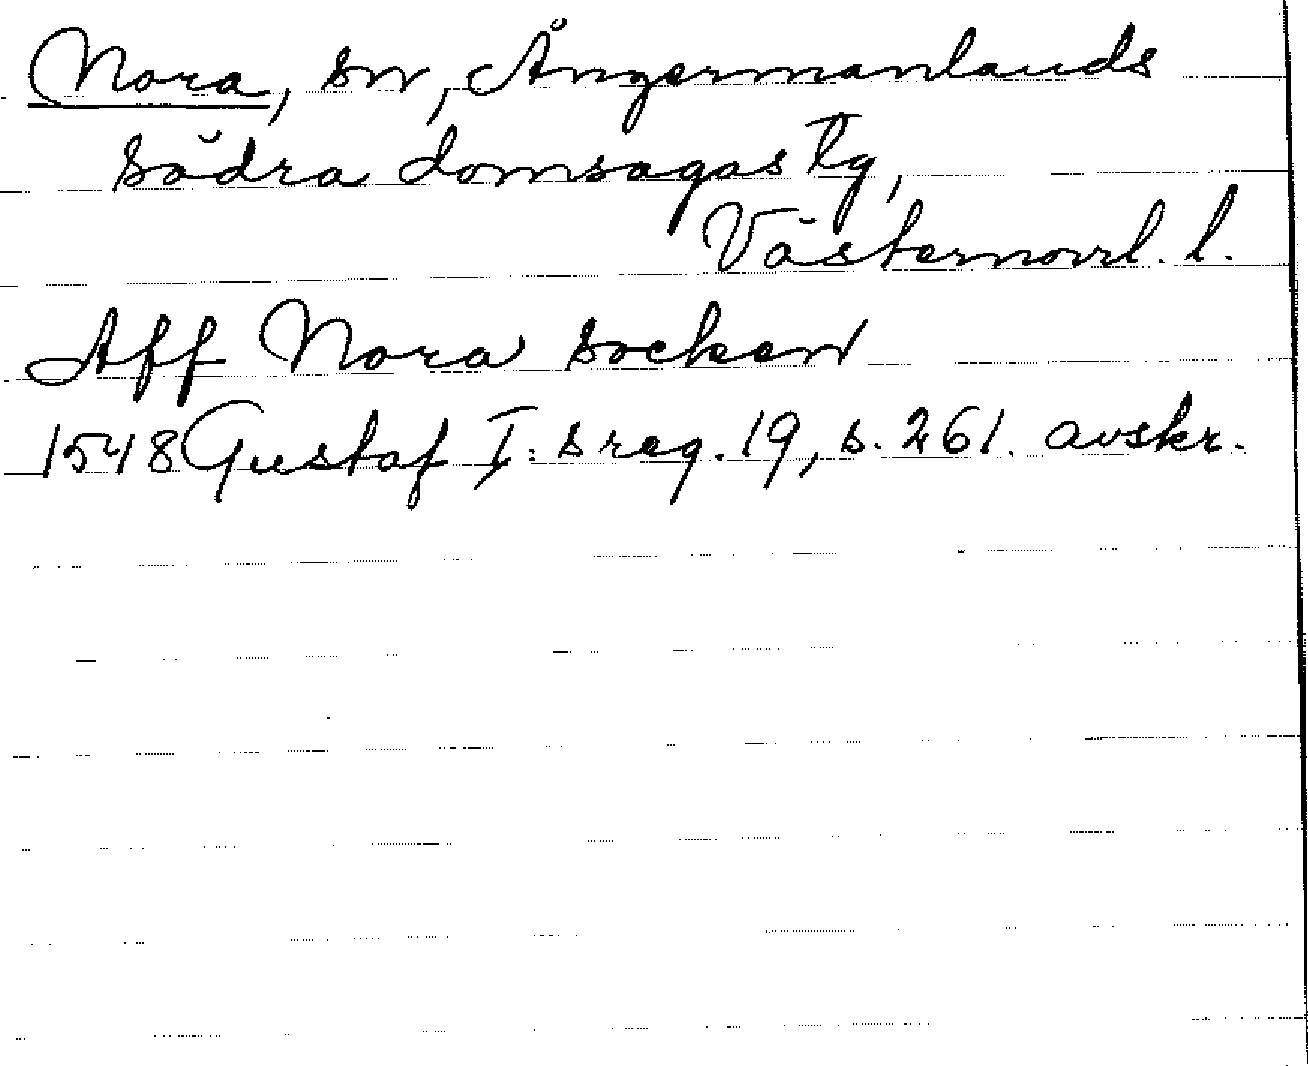 Nora, sn, Ångermanlands
södra domsagas tg,
Västernorrl. l.
Aff Nora socken
1548 Gustaf I:s reg. 19, s. 261. avskr.